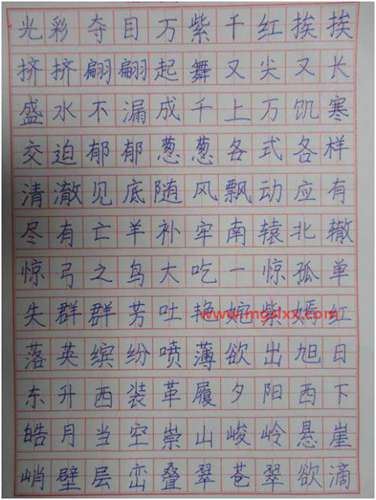 光彩夺目万紫千红挨挨
挤挤翩翩起舞又尖又长
盛水不漏成千上万饥寒
交迫郁郁葱葱各式各样
清澈见底随风飘动应有
尽有亡羊补牢南辕北辙
惊弓之鸟大吃一惊孤单
失群群芳吐艳姹紫嫣红
www.mgslxx.com
落英缤纷喷薄欲出旭日
东升西装革履夕阳西下
皓月当空崇山峻岭悬崖
峭壁层峦叠翠苍翠欲滴